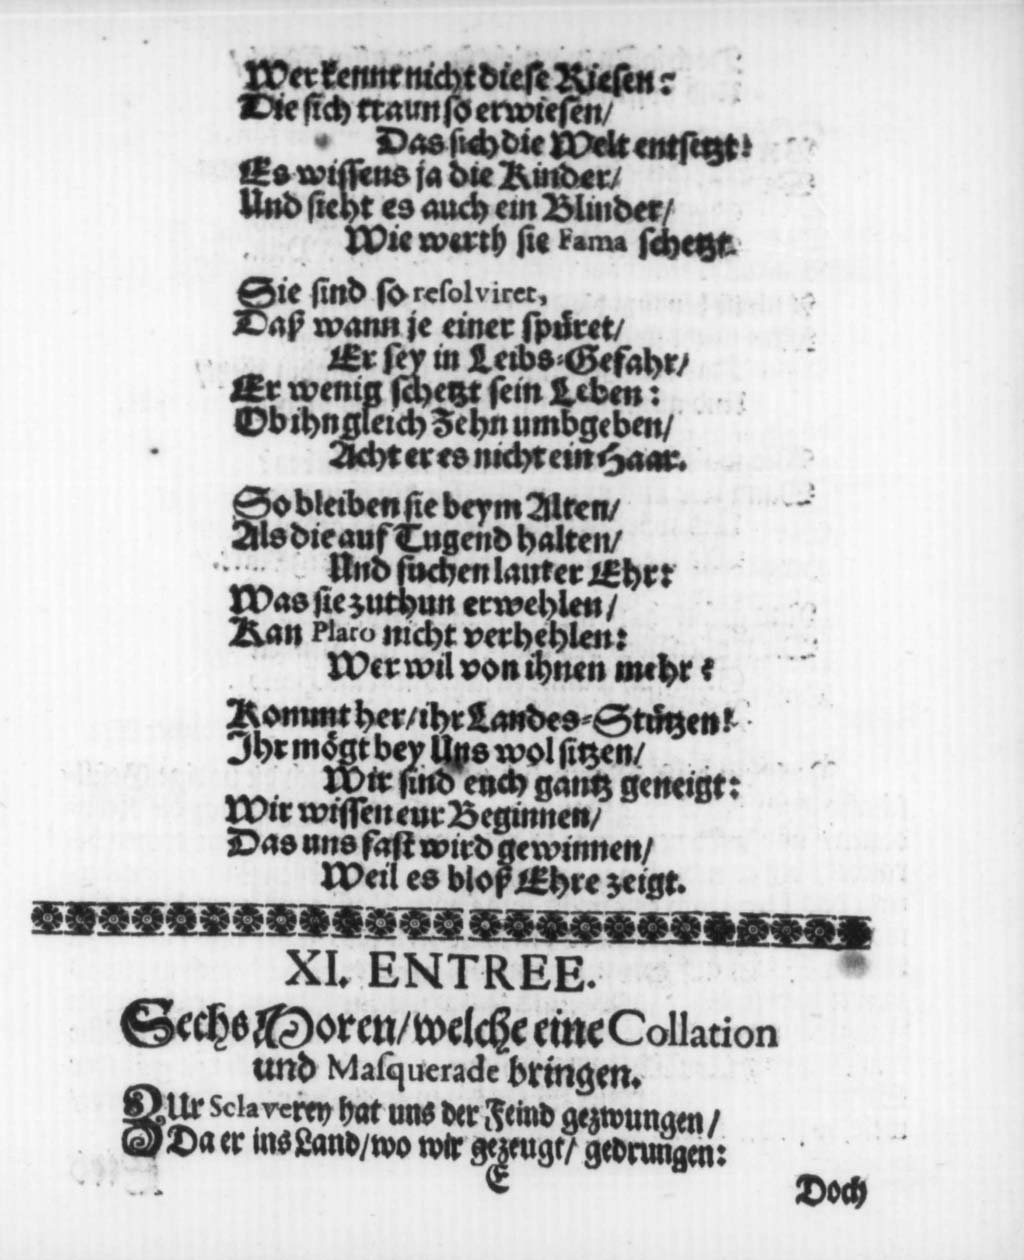 Wer kennt nicht diese Riesen:
Die sich traun so erwiesen/
Das sich die Welt entsetzt!
Es wissens ja die Kinder/
Und sieht es auch ein Blinder/
Wie werth sie Fama schetzt.
Sie sind so resolviret,
Daß wann je einer spüret/
Er sey in Leibs-Gefahr/
Er wenig schetzt sein Leben:
Ob ihn gleich Zehn umbgeben/
Acht er es nicht ein Haar.
So bleiben sie beym Alten/
Als die auf Tugend halten/
Und suchen lauter Ehr:
Was sie zuthun erwehlen/
Kan Plato nicht verhehlen:
Wer wil von ihnen mehr?
Kommt her/ ihr Landes-Stützen!
Ihr mögt bey Uns wol sitzen/
Wir sind euch gantz geneigt:
Wir wissen eur Beginnen/
Das uns fast wird gewinnen/
Weil es bloß Ehre zeigt.
XI. ENTREE.
Sechs Moren/ welche eine Collation
und Masquerade bringen.
ZUr Sclaverey hat uns der Feind gezwungen/
Da er ins Land/ wo wir gezeugt/ gedrungen:
E
Doch